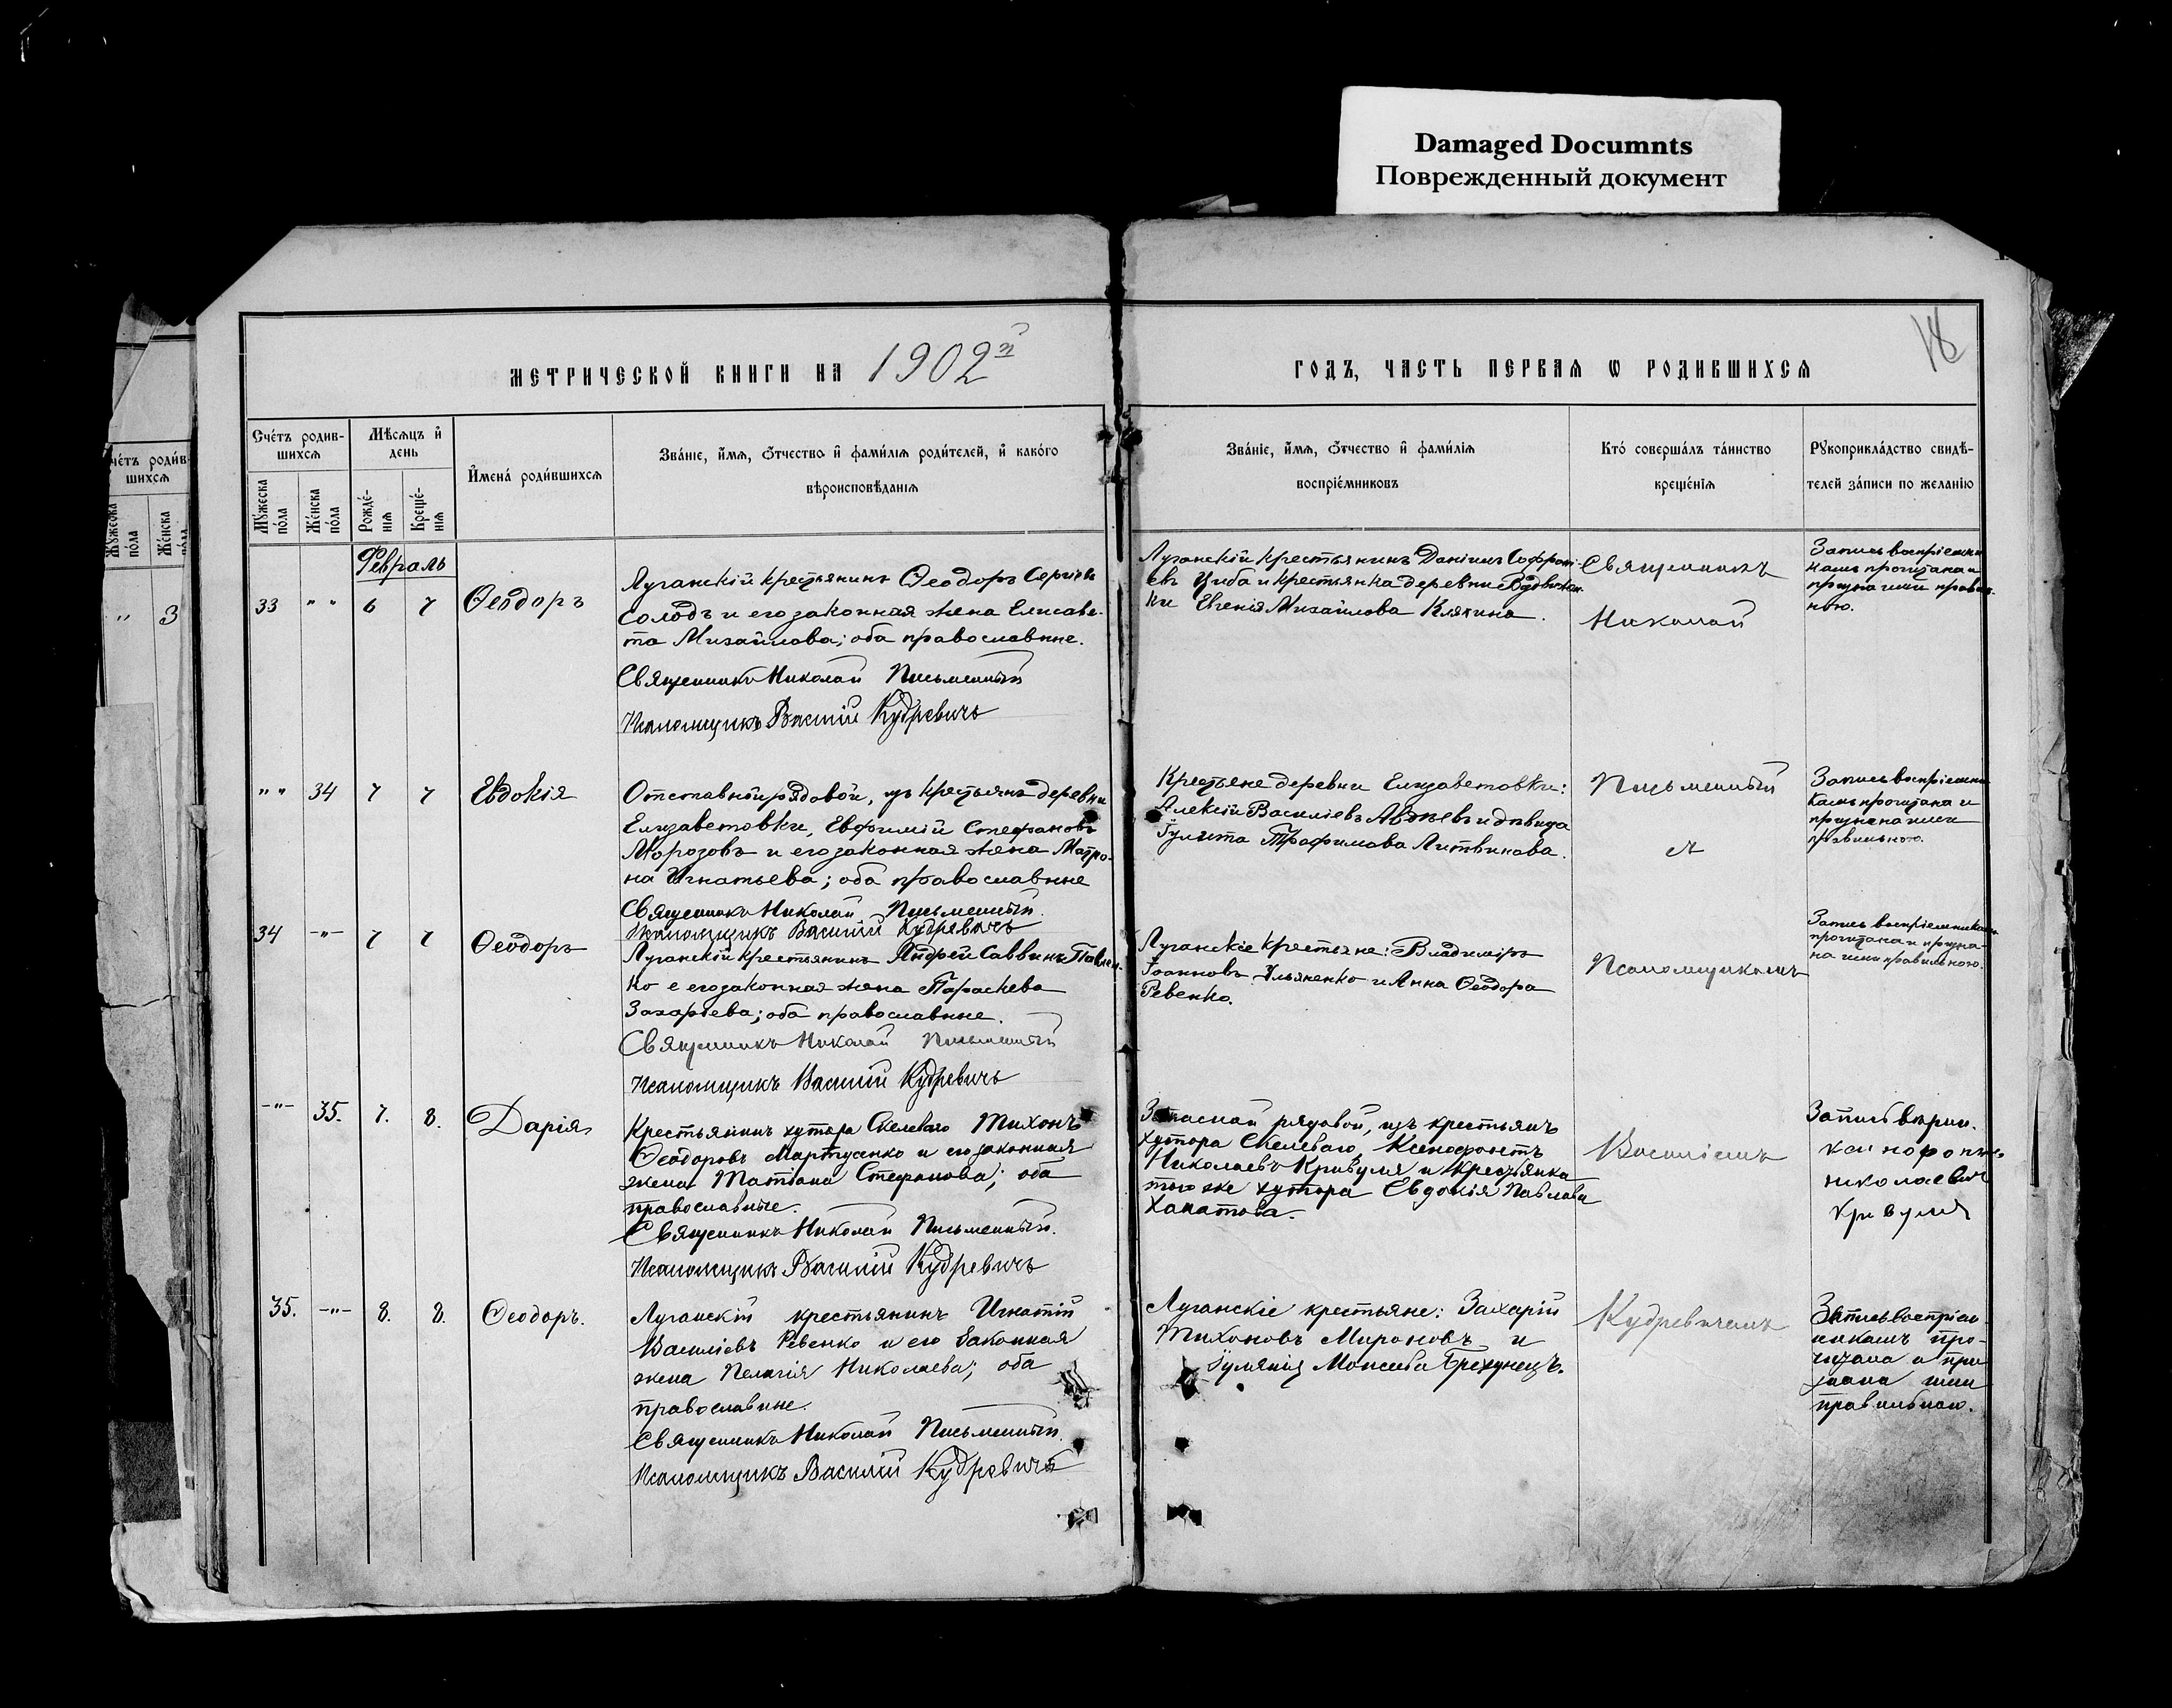 Damaged Documnts
Поврежденный документ
18
МЕТРИЧЕСКОЙ КНИГИ НА 1902й
ГОДЪ, ЧАСТЬ ПЕРВАЯ Ѡ РОДИВШИХСЯ
Счетъ родив-
шихся
Мужеска
пола
Женска
пола
Мѣсяцъ и
день
Рожде-
нія
Креще-
нія
Имена родившихся
Званіе, имя, отчество и фамилія родителей, и какого
вѣроисповѣданія
Званіе, имя, отчество и фамилія
воспріемниковъ
Кто совершалъ таинство
крещенія
Рукоприкладство свидѣ-
телей записи по желанію
" 3
Февраль
33 " " 6 7 Ѳеодоръ
Луганскій крестьянинъ Ѳеодоръ Сергіевъ
Солодъ и его законная жена Елисаве-
та Михайлова; оба православные.
Священникъ Николай Письменный
Псаломщикъ Василій Кудревичъ
Луганскій крестьянинъ Даніилъ Софрони-
евъ Циба и крестьянка деревни
ки Евгенія Михайлова Клякина.
Священникъ
Николай
Запись воспріемни
камъ прочитана и
признана ими правиль-
ною.
" " 34 7 7 Евдокія
Отставной рядовой, изъ крестьянъ деревни
Елизаветовки, Евфимій Стефановъ
Морозовъ и его законная жена Матро-
на Игнатьева; оба православные
Священникъ Николай Письменный.
Псаломщикъ Василій Кудревичъ
Крестьяне деревни Елизаветовки:
Алексій Василіевъ Авдѣевъ и дѣвица
Іулита Трофимова Литвинова.
Письменный
съ
Запись воспріемни
камъ прочитана и
признана ими
правильною.
34 -"- 7 7 Ѳеодоръ
Луганскій крестьянинъ Андрей Саввинъ Павлен-
ко е его законная жена Параскева
Захаріева; оба православные.
Священникъ Николай Письменный
Псаломщикъ Василій Кудревичъ
Луганскіе крестьяне: Владиміръ
Іоанновъ Ульяненко и Анна Ѳеодора
Ревенко.
Псаломщикомъ
Запись воспріемникамъ
прочитана и призна-
на ими правильною.
-"- 35. 7. 8. Дарія
Крестьянинъ хутора Скелеваго Тихонъ
Ѳеодоровъ Мартусенко и его законная
жена Татіана Стефанова; оба
православные.
Священникъ Николай Письменный.
Псаломщикъ Василій Кудревичъ
Запасной рядовой, изъ крестьянъ
хутора Скелеваго, Ксенофонтъ
Николаевъ Кривуля и крестьянка
того же хутора Евдокія Павлова
Василіемъ
николаевич
кривуля
35. -"- 8. 8. Ѳеодоръ.
Луганскій крестьянинъ Игнатій
Василіевъ Ревенко и его законная
жена Пелагія Николаева; оба
православные.
Священникъ Николай Письменный.
Псаломщикъ Василій Кудревичъ
Луганскіе крестьяне: Захарій
Тихоновъ Мироновъ и
Іуліанія Моисеева Брехунецъ.
Кудревичемъ
Запись воспріем-
никамъ про-
читана и при
знана ими
правильною.